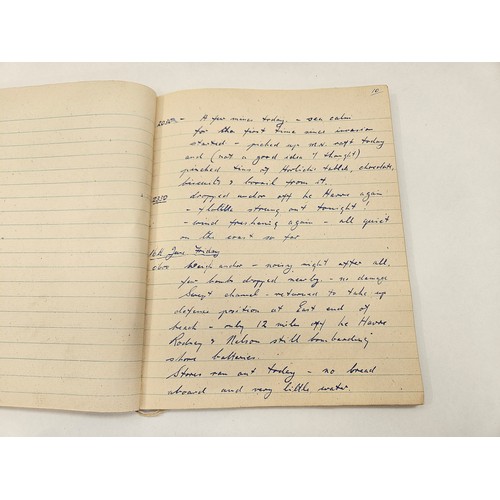 10
2030 - A few mines today. - sea calm
for the first time since invasion
started - picked up U.S. raft today
and (not a good idea I thought)
pinched tins of Horlicks tablets, chocolate,
biscuits & from it.
2330 dropped anchor off Le Havre again
- flotilla strung out tonight!
- wind freshening again - all quiet
on the coast so far
16th June Friday
0600 Weigh anchor - noisy night after all,
few bombs dropped nearby - no damage
Swept channel - returned to take up
defence position at East end of
beach - only 12 miles off Le Havre
Rodney & Nelson still bombarding
shore batteries.
Stores ran out today - no bread
aboard and very little water.